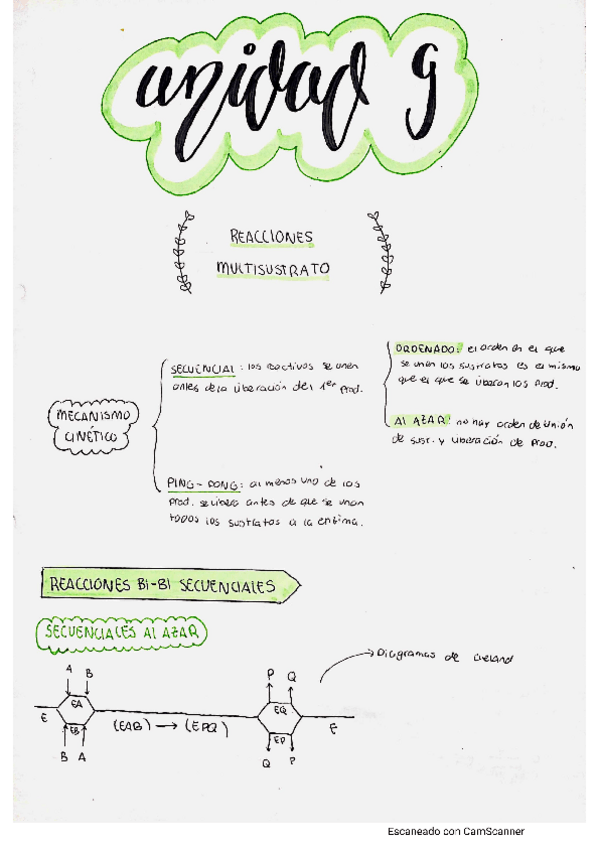 unidad 9
REACCIONES
MULTISUSTRATO
MECANISMO
CINÉTICO
SECUENCIAL: los reactivos se unen
antes de la liberación del 1er prod.
ORDENADO: el orden en el que
se unen los sustratos es el mismo
que el que se liberan los prod.
Al AZAR: no hay orden de unión
de sust. y liberación de prod.
PING-PONG: al menos uno de los
prod. se libera antes de que se unan
todos los sustratos a la enzima.
REACCIONES BI-BI SECUENCIALES
SECUENCIALES Al AZAR
Diagramas de Cleland
A B
P Q
E
EA
EB
(EAB) → (EPQ)
EQ
EP
E
B A
Q P
Escaneado con CamScanner